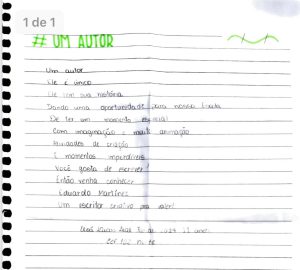 1 de 1
# UM AUTOR
Um autor
Ele é único
Ele tem sua história
Dando uma oportunidade para nossa
De ter um momento especial
Com imaginação e muita animação
de criação
E momentos imperdíveis
Você gosta de escrever
Então venha conhecer
Eduardo Martínez
Um escritor criativo pra valer!
11 anos